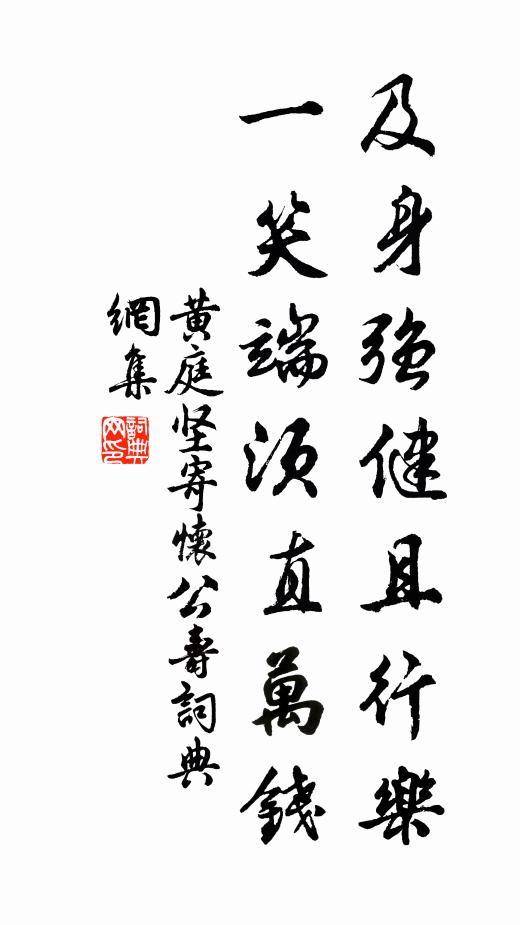 及身強健且行樂
一笑端須直萬錢
黄庭坚寄懷公壽詞典
網集
詞典
网印